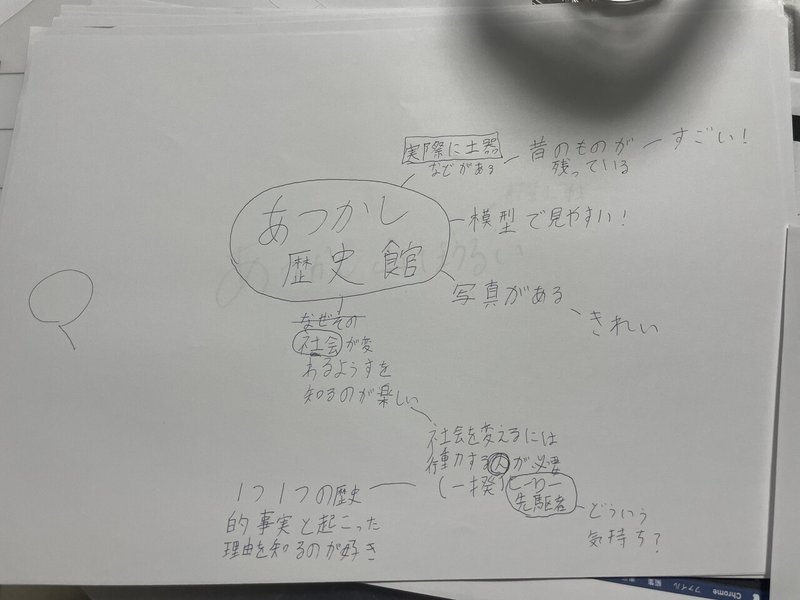 実際に土器
などがある
昔のものが
残っている
すごい!
あつかし
歴史館
模型で見やすい!
写真がある
きれい
なぜその
社会が変
わるようすを
知るのが楽しい
社会を変えるには
行動する人が必要
(一揆)ヒーロー
先駆者
どういう
気持ち?
1つ1つの歴史
的事実と起こった
理由を知るのが好き
Chrome
ファイル
編集